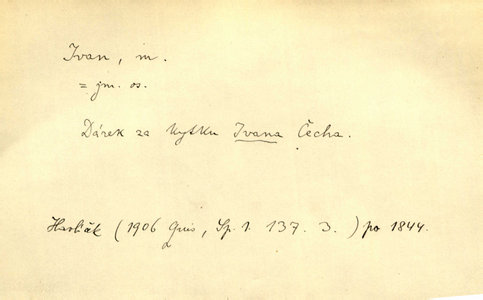 Ivan, m.
= jm. os.
Dárek za kytku Ivana Čecha.
Havlíčk (1906 Quis, Sp. 1. 137. 3.) po 1844.